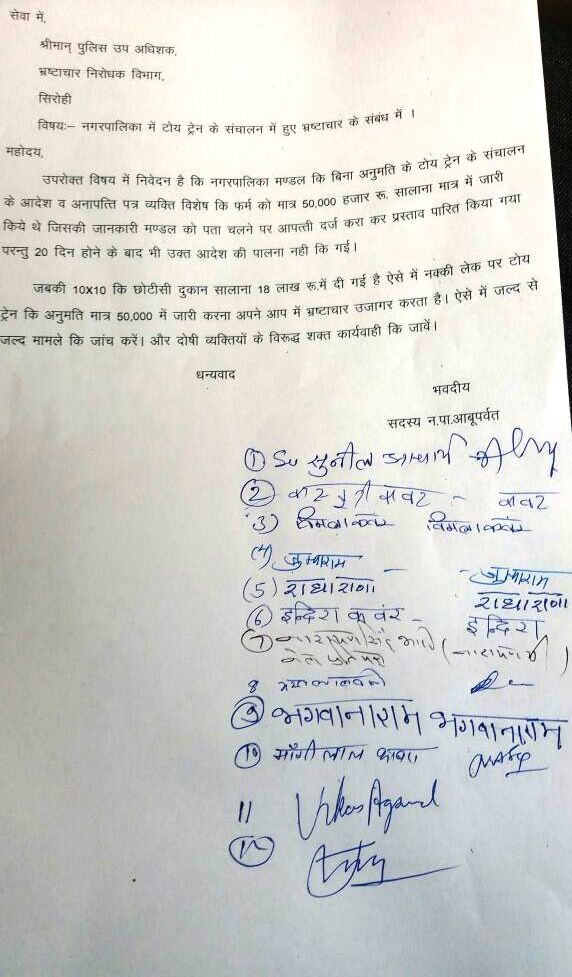 सेवा में,
श्रीमान् पुलिस उप अधिशक,
भ्रष्टाचार निरोधक विभाग,
सिरोही
विषयः– नगरपालिका में टोय ट्रेन के संचालन में हुए भ्रष्टाचार के संबंध में ।
महोदय,
उपरोक्त विषय में निवेदन है कि नगरपालिका मण्डल कि बिना अनुमति के टोय ट्रेन के संचालन
के आदेश व अनापत्ति पत्र व्यक्ति विशेष कि फर्म को मात्र 50,000 हजार रू. सालाना मात्र में जारी
किये थे जिसकी जानकारी मण्डल को पता चलने पर आपत्ती दर्ज करा कर प्रस्ताव पारित किया गया
परन्तु 20 दिन होने के बाद भी उक्त आदेश की पालना नही कि गई ।
जबकी 10X10 कि छोटीसी दुकान सालाना 18 लाख रू.में दी गई है ऐसे में नक्की लेक पर टोय
ट्रेन कि अनुमति मात्र 50,000 में जारी करना अपने आप में भ्रष्टाचार उजागर करता है । ऐसे में जल्द से
जल्द मामले कि जांच करें । और दोषी व्यक्तियों के विरूद्ध शक्त कार्यवाही कि जावें ।
धन्यवाद
भवदीय
सदस्य न.पा.आबूपर्वत
(1) सुनील आचार्य
(2) कंवर - कंवर
(3)
(4) जुमाराम - जुमाराम
(5) राधाराणा - राधाराणा
(6) इन्दिरा कंवर - इन्दिरा
(7)
8
(9) भगवानाराम भगवानाराम
(10) माँगीलाल काबरा
11 Vikas Agarwal
(12)